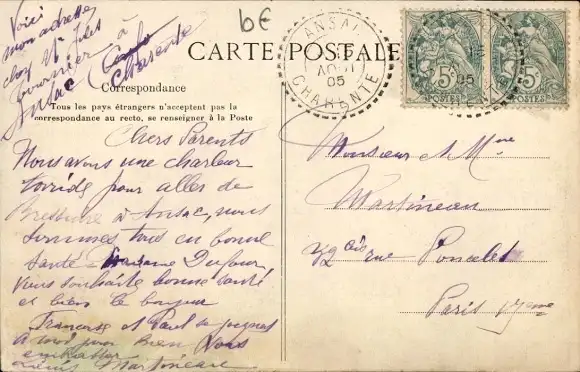 Voici
mon adresse
chez Mr Jules
Fournier à
Ansac Charente
6€
CARTE POSTALE
Correspondance
Tous les pays étrangers n'acceptent pas la
correspondance au recto, se renseigner à la Poste
ANSAC
AOUT
05
CHARENTE
5c
POSTES
5c
POSTES
05
Chers Parents
Nous avons une chaleur
torride pour aller de
Bressuire à Ansac, nous
sommes tous en bonne
santé Madame Dufour
vous souhaite bonne santé
et bien le bonjour
Françoise et Paul se joignent
à moi pour bien vous
embrasser
Martineau
Monsieur et Mme
Martineau
rue Poncelet
Paris 17eme